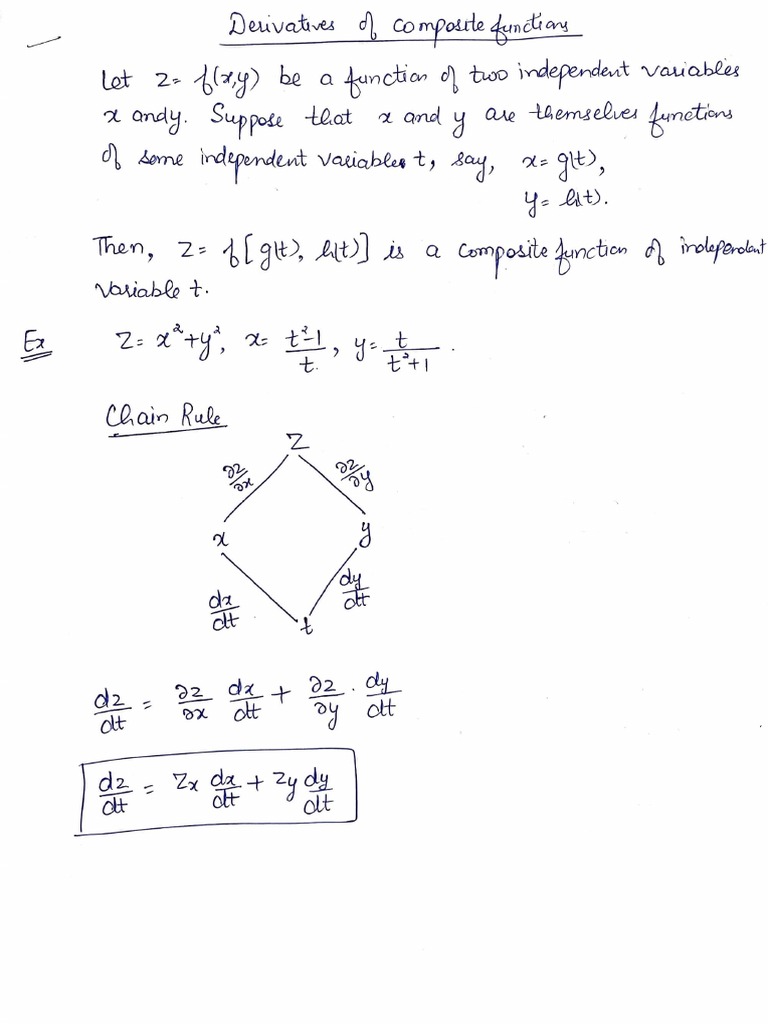 Derivatives of composite functions
Let z= f(x,y) be a function of two independent variables
x and y. Suppose that x and y are themselves functions
of some independent variables t, say, x= g(t),
y= h(t).
Then, z= f[g(t), h(t)] is a composite function of independent
variable t.
Ex z= x²+y², x= (t²-1)/t, y= t/(t²+1).
Chain Rule
z
∂z/∂x ∂z/∂y
x y
dx/dt dy/dt
t
dz/dt = ∂z/∂x dx/dt + ∂z/∂y · dy/dt
dz/dt = Zx dx/dt + Zy dy/dt